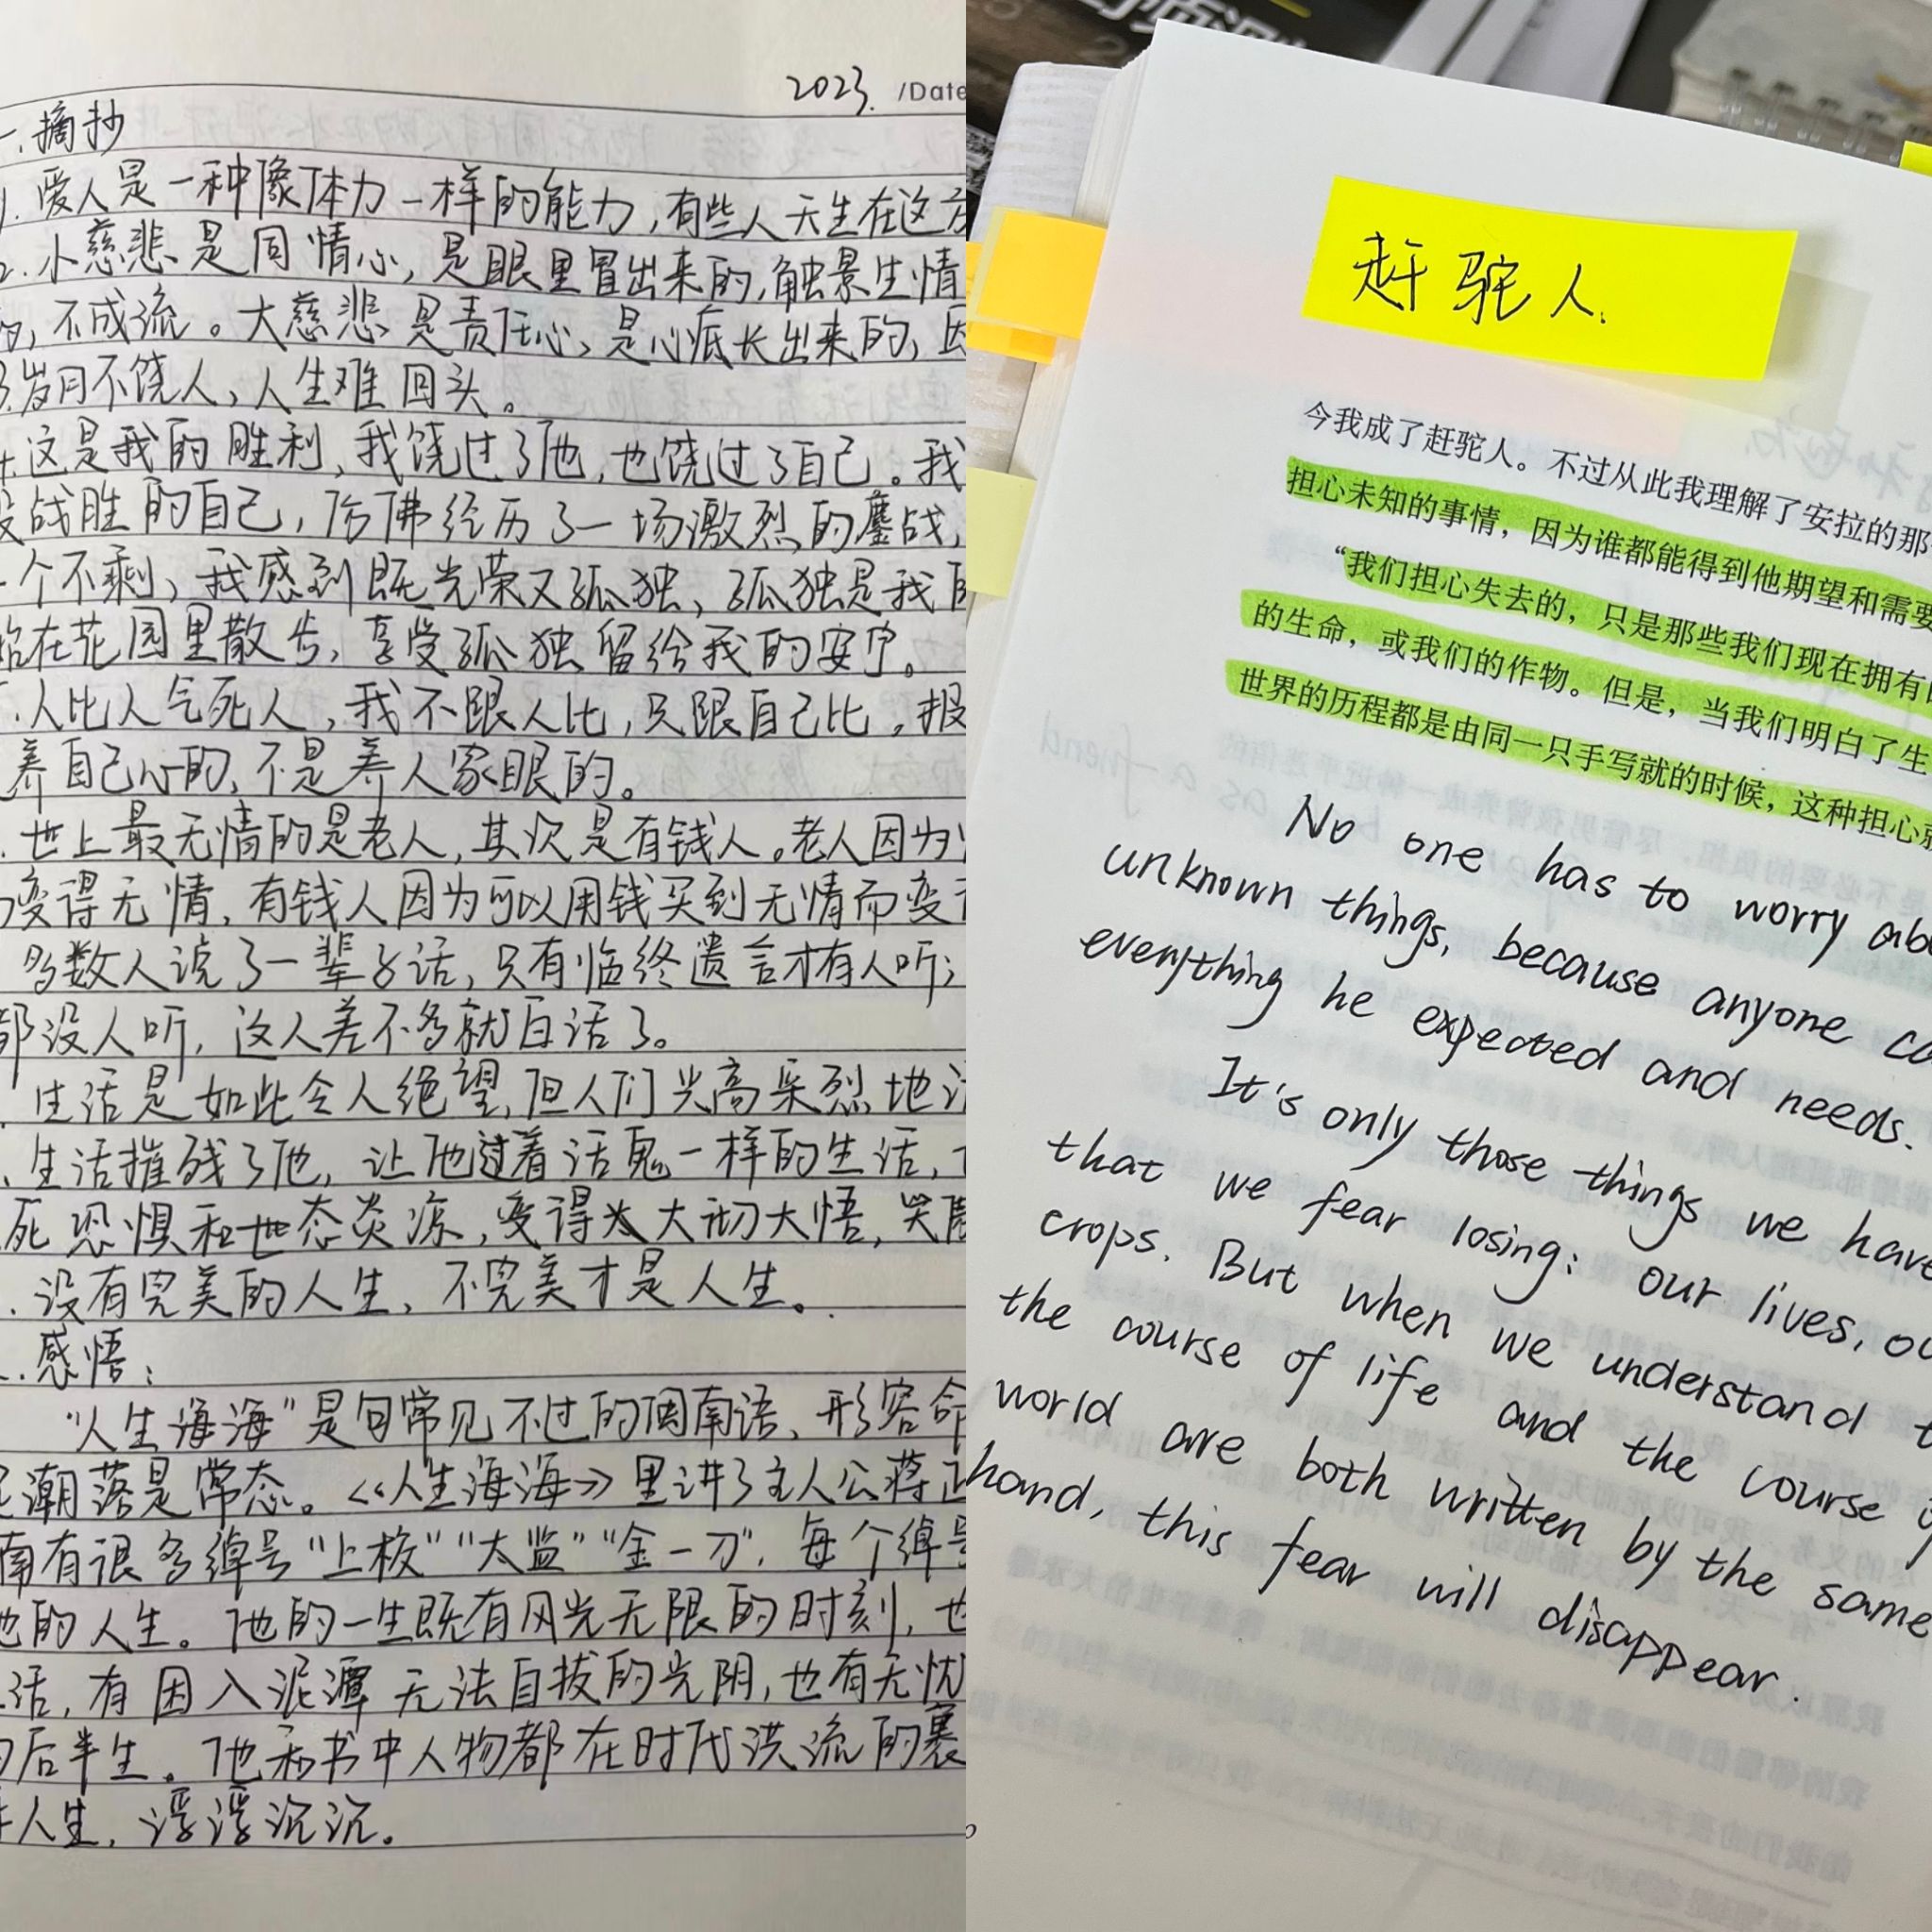 2023. /Date
一.摘抄
1.爱人是一种像体力一样的能力,有些人天生在这方
2.小慈悲是同情心,是眼里冒出来的,触景生情
的,不成流。大慈悲是责任心,是心底长出来的,因
3.岁月不饶人,人生难回头。
这是我的胜利,我饶过了他,也饶过了自己。我
战胜的自己,仿佛经历了一场激烈的鏖战,
一个不剩,我感到既光荣又孤独,孤独是我
在花园里散步,享受孤独留给我的安宁。
.人比人气死人,我不跟人比,只跟自己比。报
养自己心的,不是养人家眼的。
.世上最无情的是老人,其次是有钱人。老人因为
变得无情,有钱人因为可以用钱买到无情而变
多数人说了一辈子话,只有临终遗言才有人听;
都没人听,这人差不多就白活了。
.生活是如此令人绝望,但人们兴高采烈地活
.生活摧残了他,让他过着活鬼一样的生活,
死恐惧和世态炎凉,变得大彻大悟,笑
.没有完美的人生,不完美才是人生。
.感悟:
“人生海海”是句常见不过的闽南语,形容命
潮落是常态。《人生海海》里讲了主人公蒋正
南有很多绰号“上校”“太监”“金一刀”,每个绰号
他的人生。他的一生既有风光无限的时刻,也
活,有困入泥潭无法自拔的光阴,也有无忧
的后半生。他和书中人物都在时代洪流的裹
人生,浮浮沉沉。
赶驼人.
今我成了赶驼人。不过从此我理解了安拉的那
担心未知的事情,因为谁都能得到他期望和需要
“我们担心失去的,只是那些我们现在拥有
的生命,或我们的作物。但是,当我们明白了生
世界的历程都是由同一只手写就的时候,这种担心就
No one has to worry abo
unknown things, because anyone ca
everything he expected and needs.
It's only those things we have
that we fear losing: our lives, ou
crops. But when we understand t
the course of life and the course of
world are both written by the same
hand, this fear will disappear.